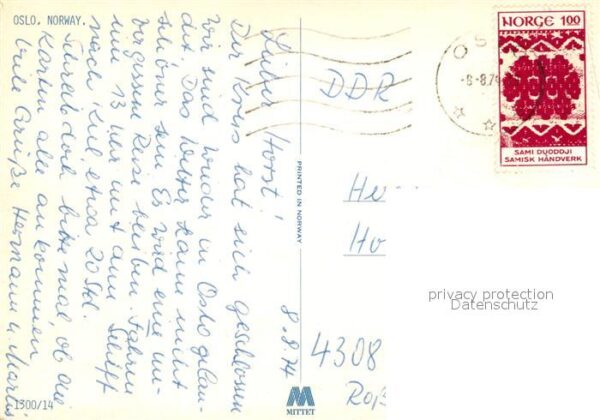 OSLO, NORWAY.
Lieber Horst!
Der Kreis hat sich geschlossen
Wir sind wieder in Oslo gelan-
det. Das Wetter kann nicht
schöner sein. Es wird eine un-
vergessene Reise bleiben. Fahren
um 13 Uhr mit dem Schiff
nach Kiel etwa 20 Std.
Schreib doch bitte mal, ob die
Karten alle ankommen
Viele Grüße Hermann u Marlis
8.8.74
1300/14
PRINTED IN NORWAY
MITTET
DDR
He
Ho
4308
Roß
NORGE 100
SAMI DUODDJI
SAMISK HÅNDVERK
OS
-8.8.74
privacy protection
Datenschutz